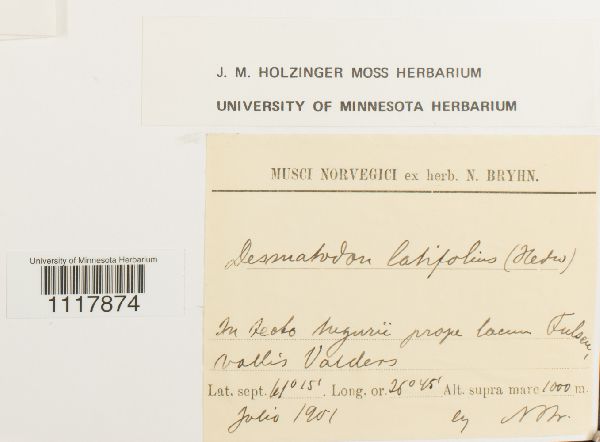 J. M. HOLZINGER MOSS HERBARIUM
UNIVERSITY OF MINNESOTA HERBARIUM
MUSCI NORVEGICI ex herb. N. BRYHN.
Desmatodon latifolius (Hedw)
University of Minnesota Herbarium
1117874
In tecto tugurii prope lacum Fulsen,
vallis Valders
Lat. sept. 61° 15'. Long. or. 26° 45' Alt. supra mare 1000 m.
Julio 1901 leg N Br.